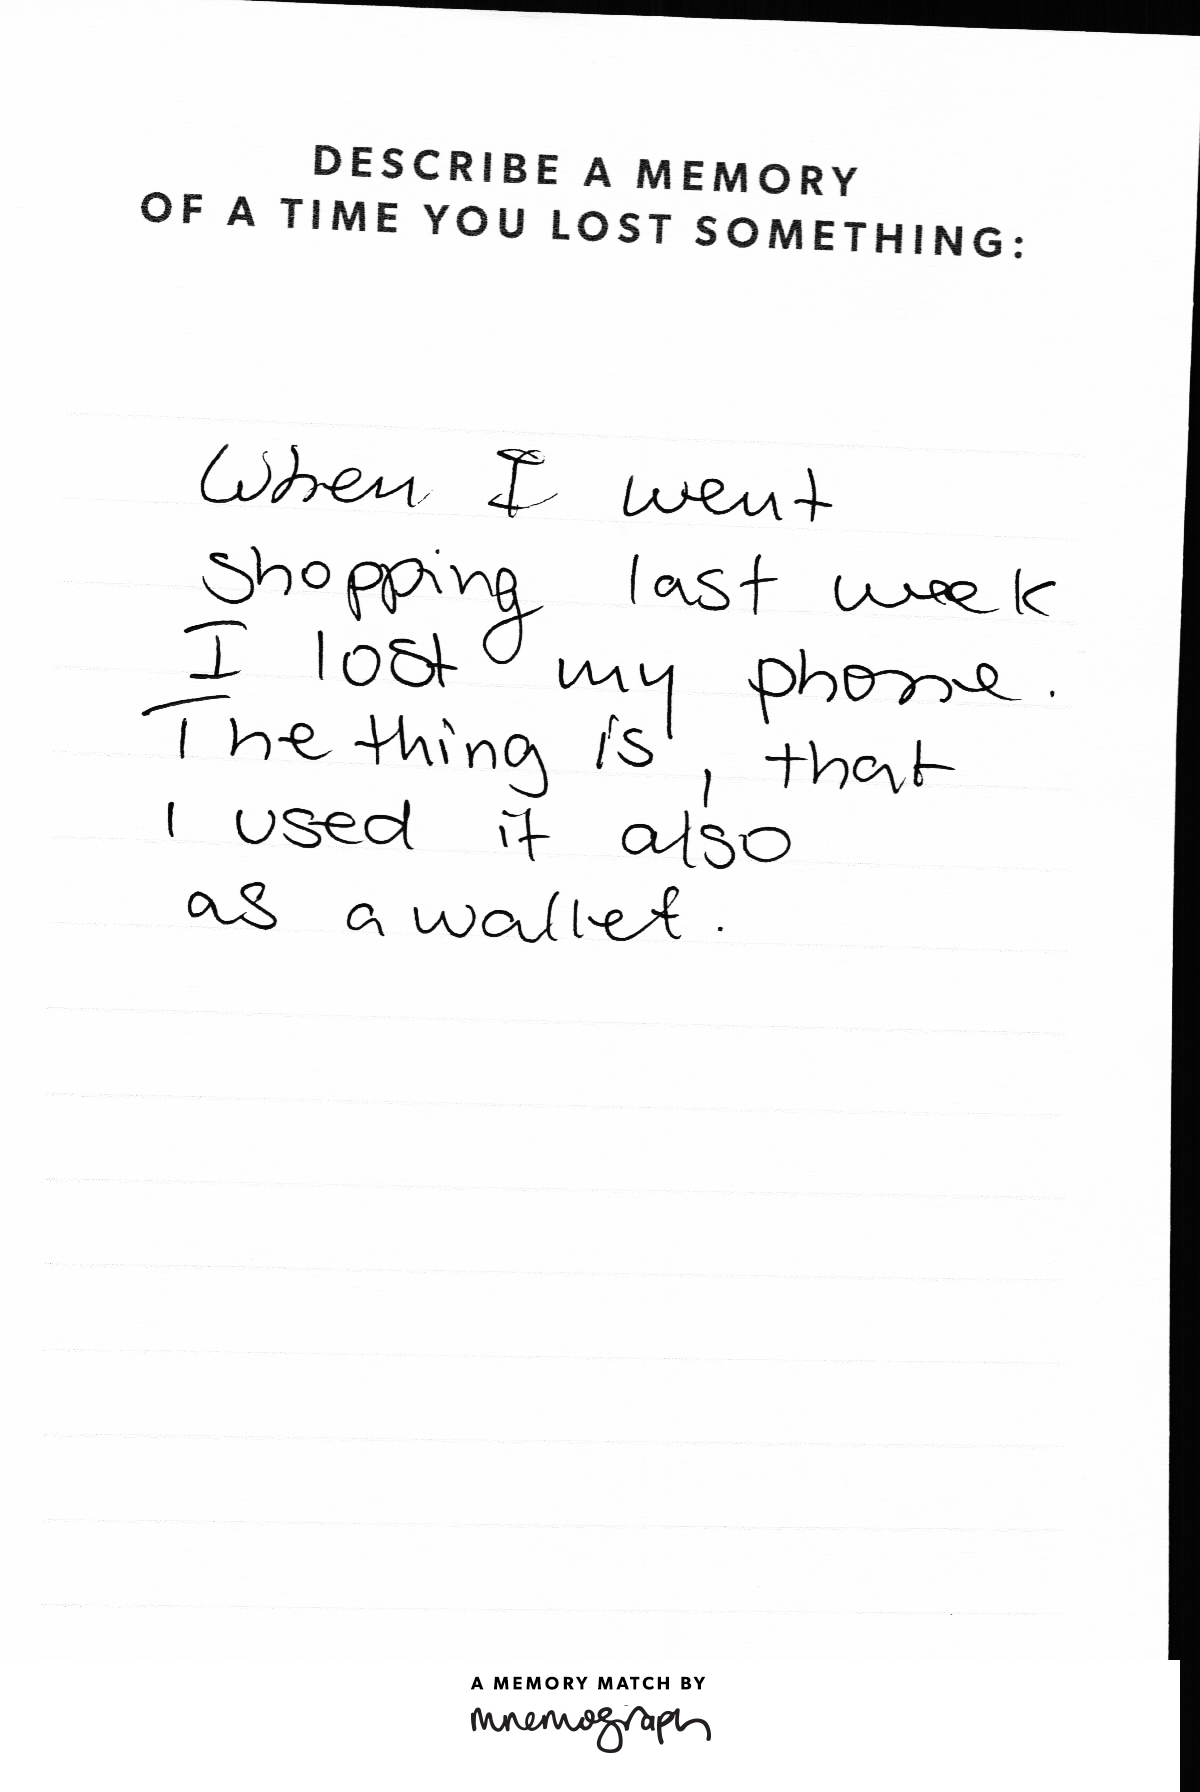 DESCRIBE A MEMORY
OF A TIME YOU LOST SOMETHING:
When I went
shopping last week
I lost my phone.
The thing is, that
I used it also
as a wallet.
A MEMORY MATCH BY
mnemograph